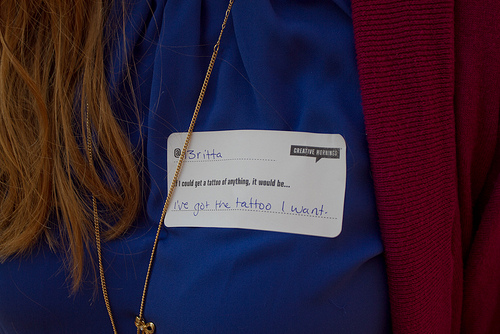 @i3ritta
CREATIVE MORNINGS
If I could get a tattoo of anything, it would be...
I've got the tattoo I want.